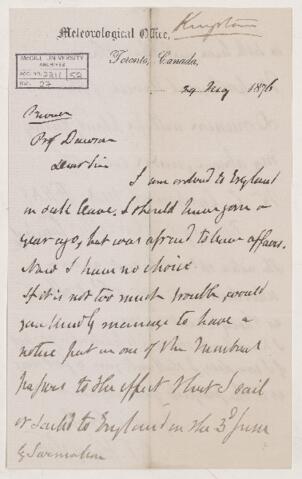 Meteorological Office, Kingston
Toronto, Canada,
McGILL UNIVERSITY
ARCHIVES
ACC. NO. 2211 52
REF. 27
24 May 1876
Private
Prof Dawson
Dear Sir
I am ordered to England
on sick leave. I should have gone a
year ago, but was afraid to leave affairs.
Now I have no choice
If it is not too much trouble would
you kindly manage to have a
notice put in one of the Montreal
papers to the effect that I sail
or sailed to England on the 3d June
by Sarmatian